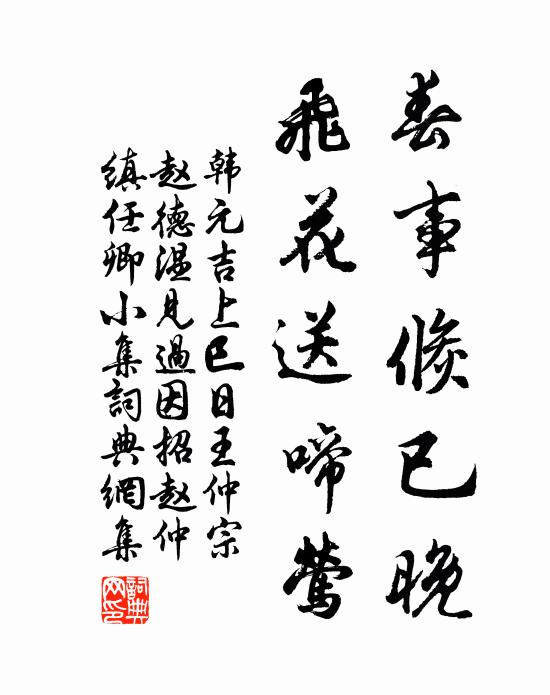 春事倏已晚
飛花送啼鶯
韩元吉上巳日王仲宗
赵德温見過因招赵仲
缜任卿小集詞典網集
詞典網印